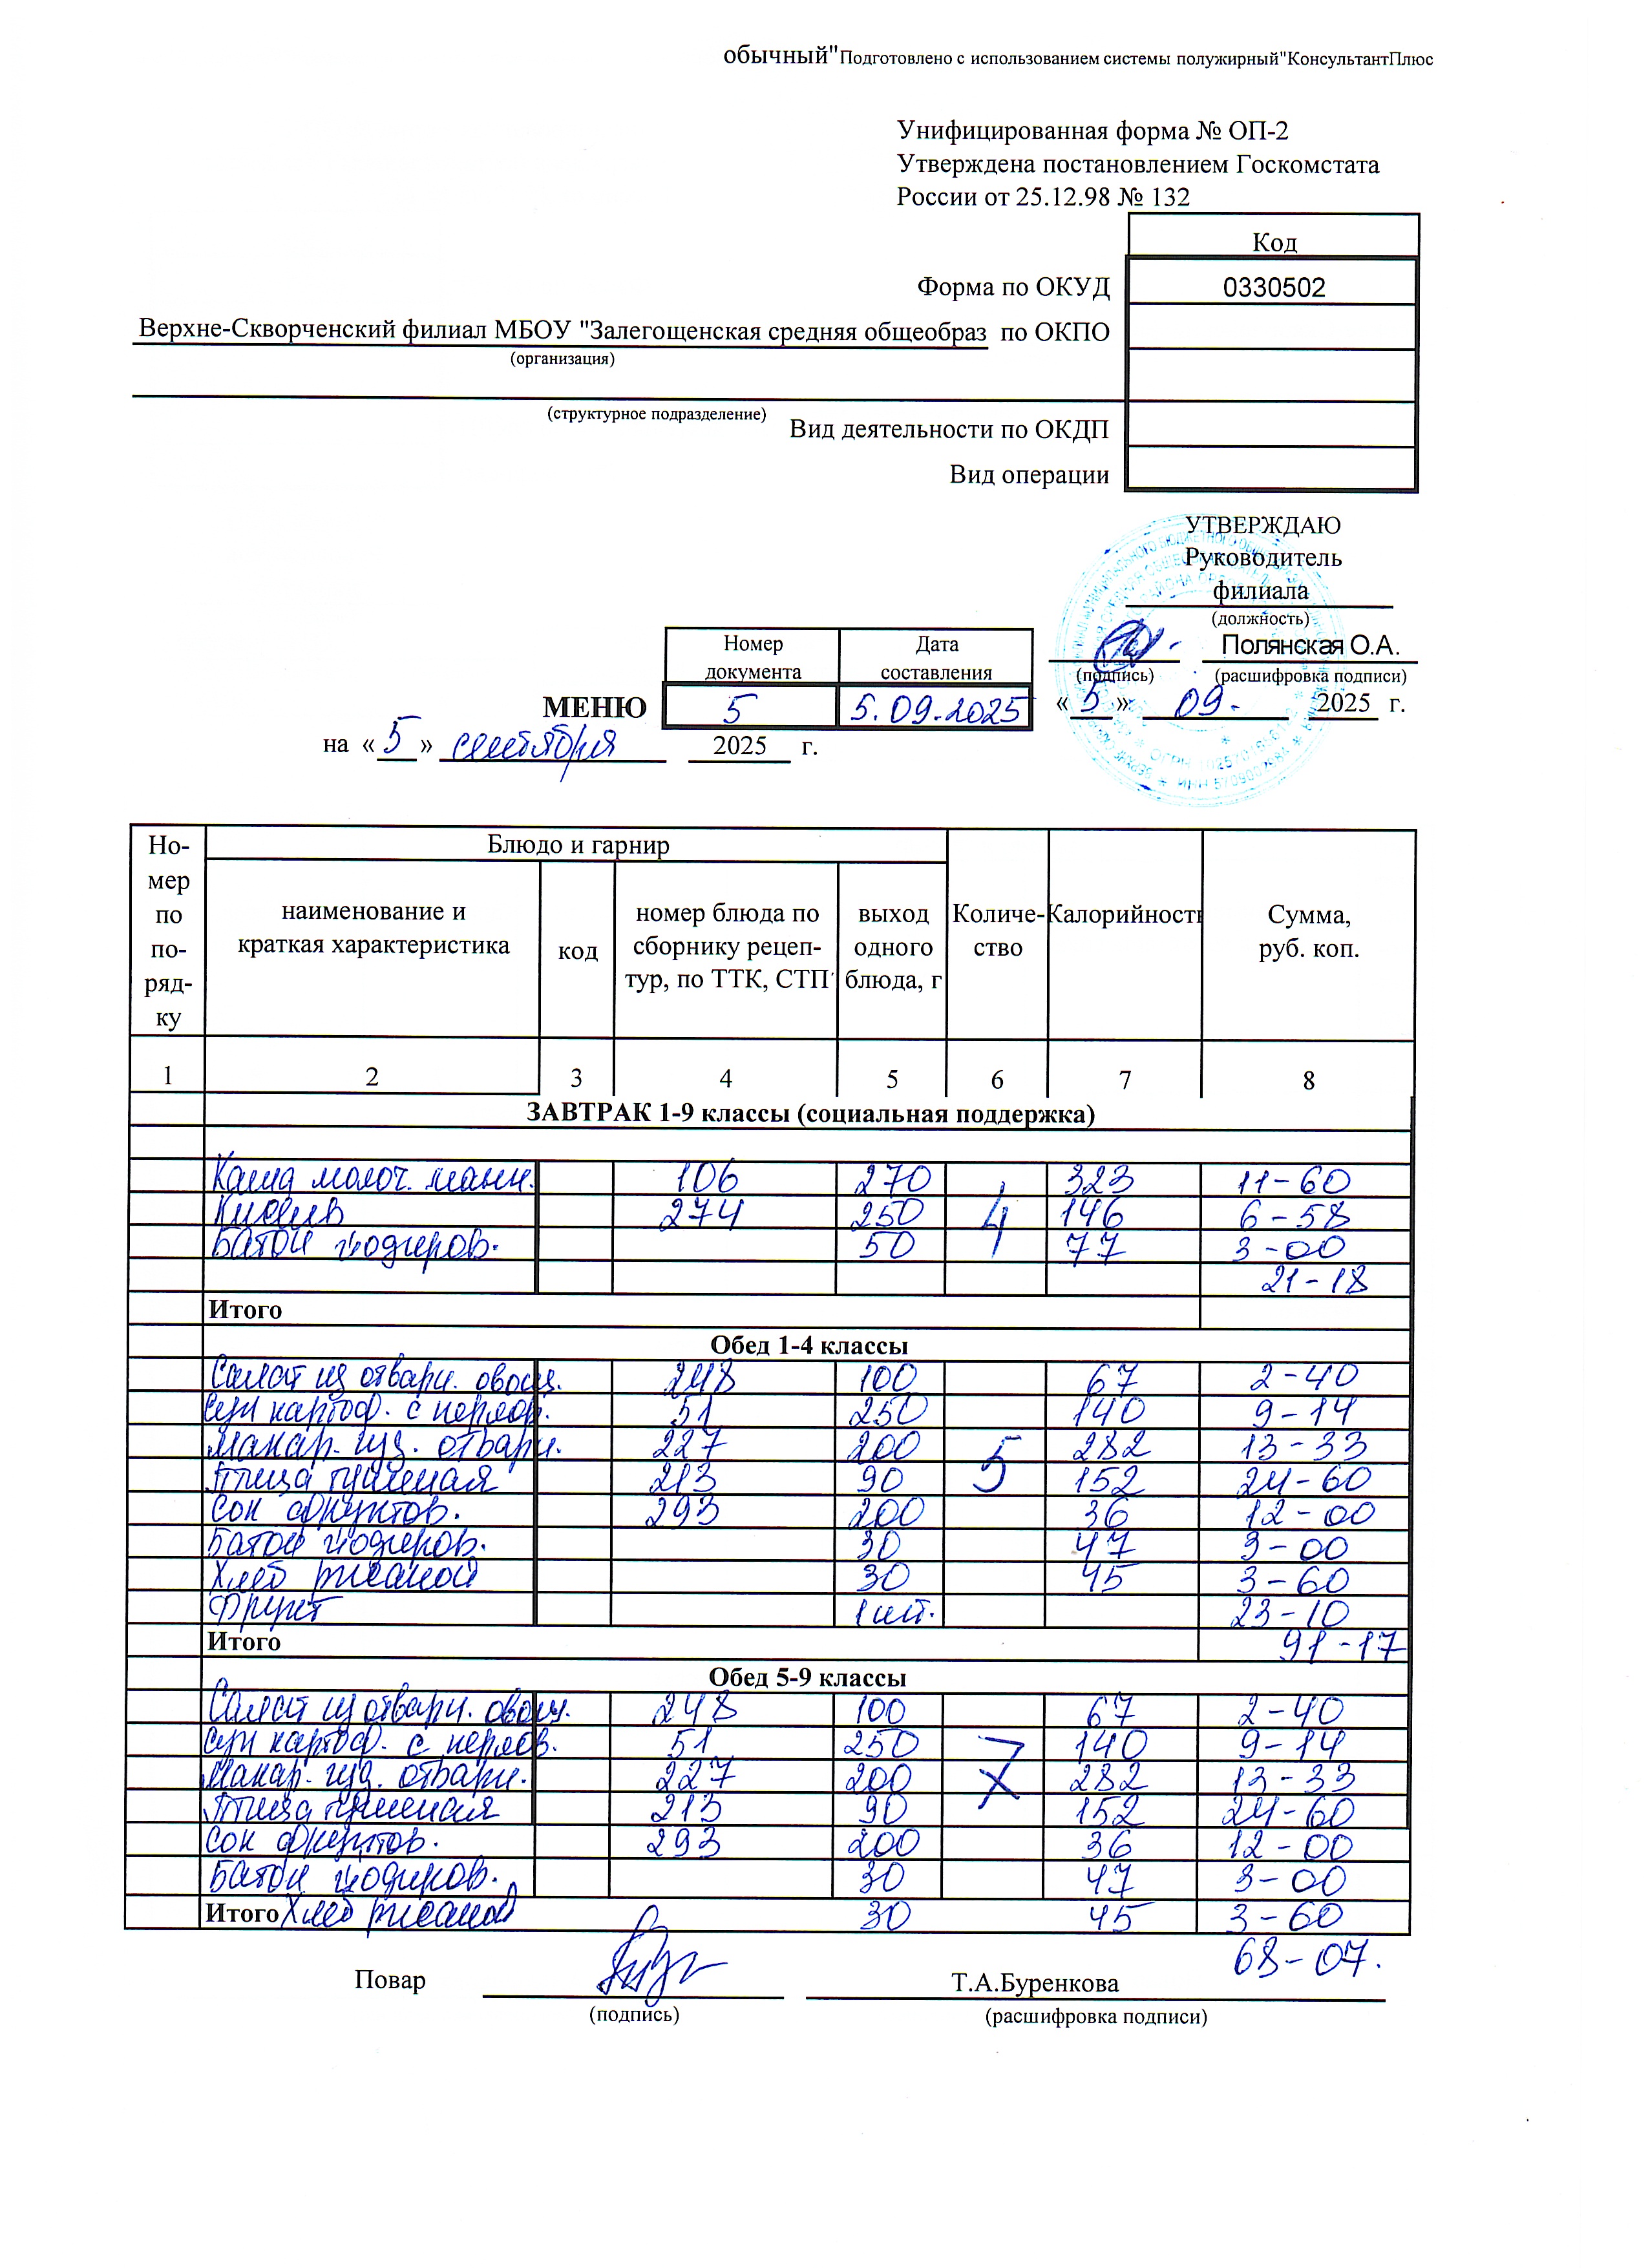 обычный"Подготовлено с использованием системы полужирный"КонсультантПлюс
Унифицированная форма № ОП-2
Утверждена постановлением Госкомстата
России от 25.12.98 № 132
Код
Форма по ОКУД 0330502
Верхне-Скворченский филиал МБОУ "Залегощенская средняя общеобраз по ОКПО
(организация)
(структурное подразделение)
Вид деятельности по ОКДП
Вид операции
УТВЕРЖДАЮ
Руководитель
филиала
(должность)
Полянская О.А.
(подпись) (расшифровка подписи)
« 5 » 09. 2025 г.
Номер документа Дата составления
МЕНЮ 5 5.09.2025
на « 5 » сентября 2025 г.
Но-
мер
по
по-
ряд-
ку
Блюдо и гарнир
наименование и
краткая характеристика
код
номер блюда по
сборнику рецеп-
тур, по ТТК, СТП
выход
одного
блюда, г
Количе-
ство
Калорийность
Сумма,
руб. коп.
1 2 3 4 5 6 7 8
ЗАВТРАК 1-9 классы (социальная поддержка)
Каша молоч. манн. 106 270 323 11-60
274 250 4 146 6-58
Батон йодиров. 50 77 3-00
21-18
Итого
Обед 1-4 классы
Салат из отварн. овощ. 248 100 67 2-40
Суп картоф. с перлов. 51 250 140 9-14
Макар. изд. отварн. 227 200 5 282 13-33
Птица тушеная 213 90 152 24-60
Сок фруктов. 293 200 36 12-00
Батон йодиров. 30 47 3-00
Хлеб ржаной 30 45 3-60
Фрукт 1 шт. 23-10
Итого 91-17
Обед 5-9 классы
Салат из отварн. овощ. 248 100 67 2-40
Суп картоф. с перлов. 51 250 7 140 9-14
Макар. изд. отварн. 227 200 282 13-33
Птица тушеная 213 90 152 24-60
Сок фруктов. 293 200 36 12-00
Батон йодиров. 30 47 3-00
Итого Хлеб ржаной 30 45 3-60
68-07.
Повар Т.А.Буренкова
(подпись) (расшифровка подписи)